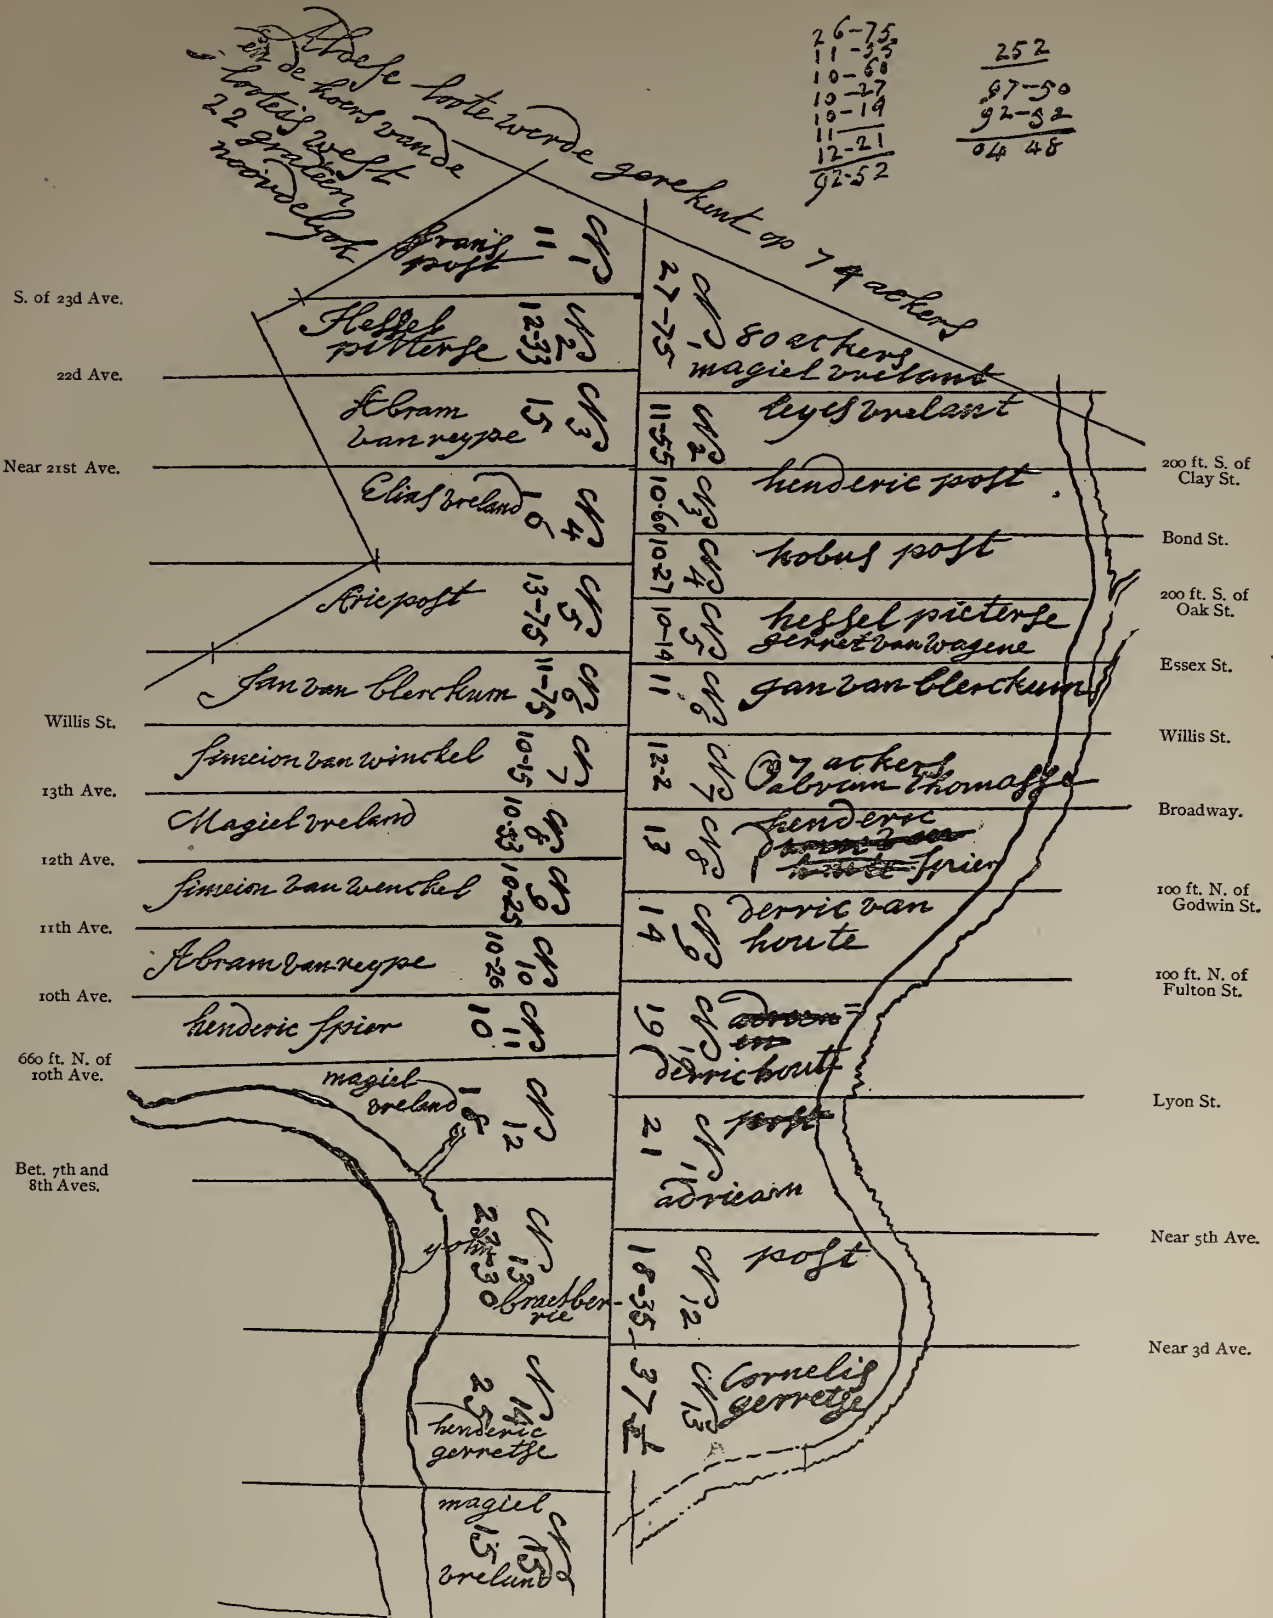 Al dese loote werde gerekent op 74 ackers
en de koers van de
looteis west
22 graeten
noordelyok
26-75
11-55
10-60
10-27
10-19
11
12-21
92-52
252
97-50
92-52
04 48
S. of 23d Ave.
22d Ave.
Near 21st Ave.
Willis St.
13th Ave.
12th Ave.
11th Ave.
10th Ave.
660 ft. N. of
10th Ave.
Bet. 7th and
8th Aves.
frans
post
11
N 1
Hessel
pitterse
12-33
N 2
Abram
van reype
15
N 3
Elias vreland
16
N 4
Arie post
13-75
N 5
Jan van blerckum
11-75
N 6
simeion van winckel
10-15
N 7
Magiel vreland
10-33
N 8
simeion van wenckel
10-25
N 9
Abram van reype
10-26
N 10
henderic spier
10
N 11
magiel
vreland
18
N 12
yohn
23-30
N 13
braetber-
rie
25
N 14
henderic
gerretse
magiel
15
N 15
vreland
27-75
N 1
80 ackers
magiel vrelant
11-55
N 2
leyes vrelant
10-60
N 3
henderic post
10-27
N 4
kobus post
10-19
N 5
hessel pieterse
gerret van wagene
11
N 6
gan van blerckum
12-2
N 7
7 ackers
abram thomasse
13
N 8
henderic
spier
14
N 9
derric van
houte
19
N 10
derric houte
21
N 11
post
adrieaen
18-35
N 12
post
37-1/2
N 13
Cornelis
gerretse
200 ft. S. of
Clay St.
Bond St.
200 ft. S. of
Oak St.
Essex St.
Willis St.
Broadway.
100 ft. N. of
Godwin St.
100 ft. N. of
Fulton St.
Lyon St.
Near 5th Ave.
Near 3d Ave.